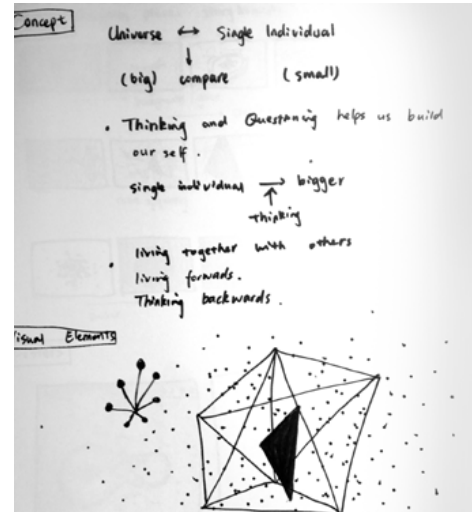 Concept
Universe ↔ Single Individual
↓
(big) compare (small)
• Thinking and Questoning helps us build
our self.
single individual → bigger
↑
thinking
• living together with others
living forwards.
Thinking backwards.
isual Elements